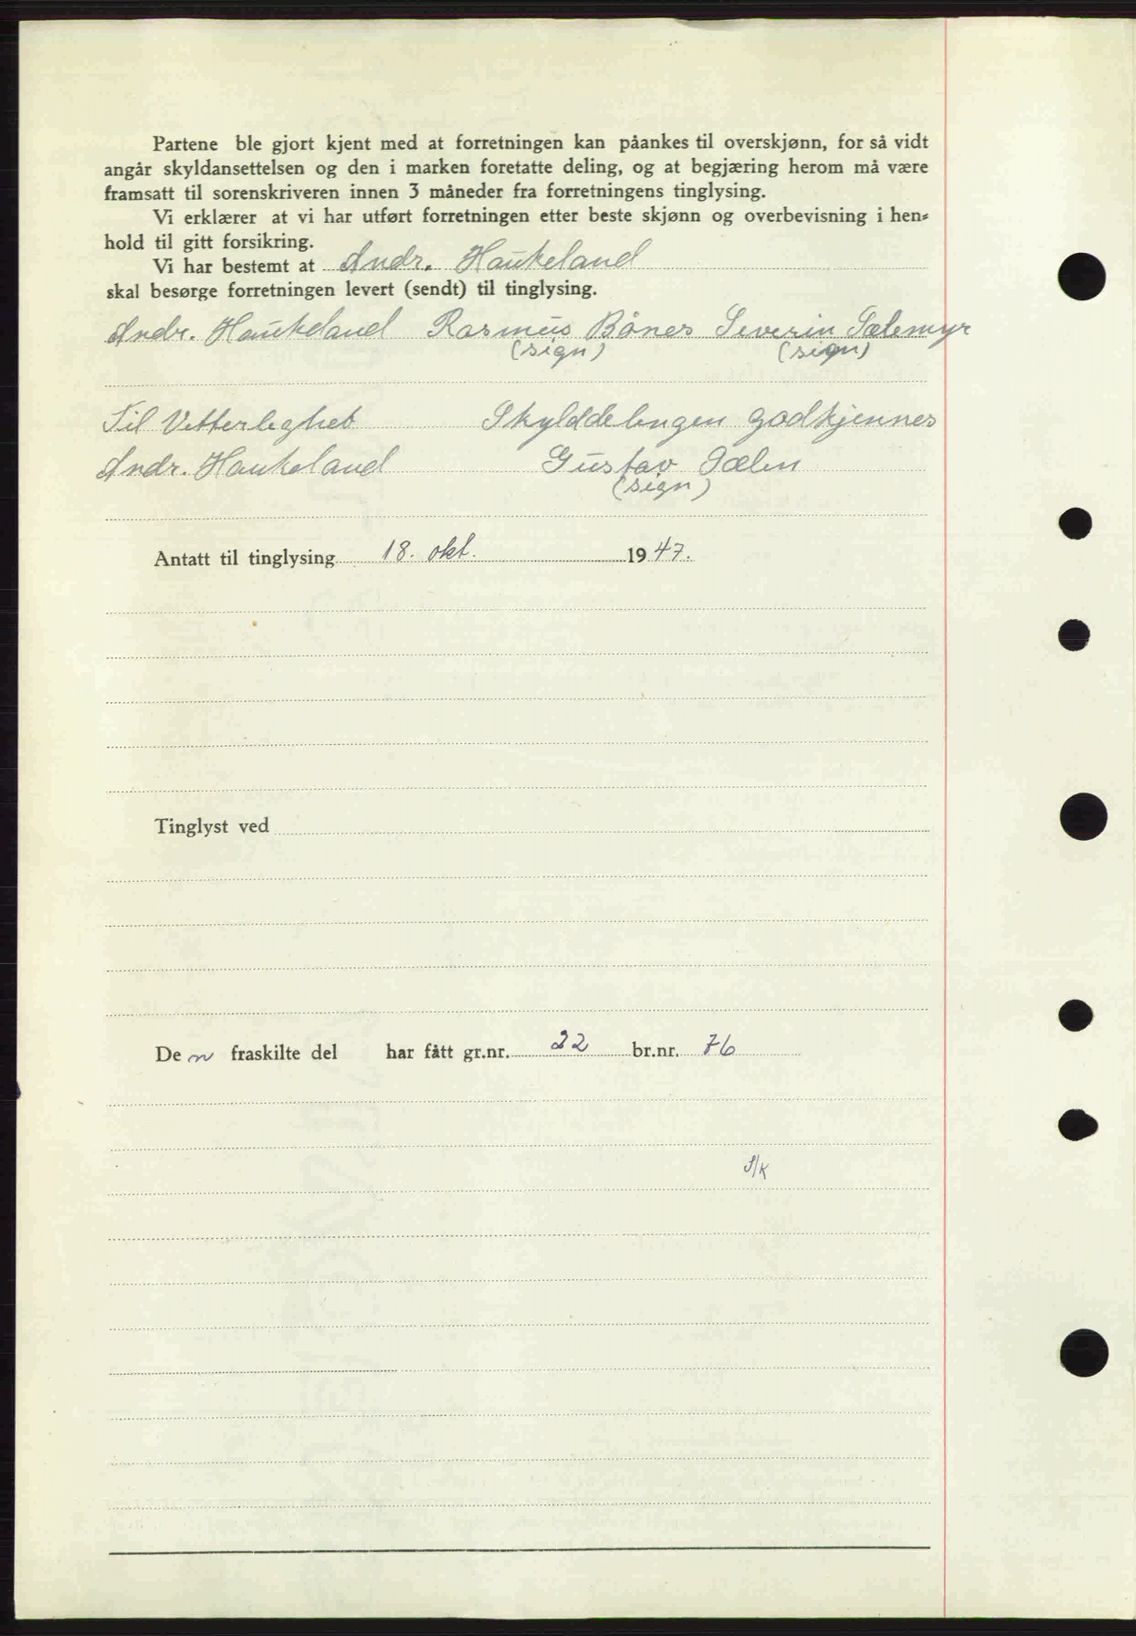 Partene ble gjort kjent med at forretningen kan påankes til overskjønn, for så vidt
angår skyldansettelsen og den i marken foretatte deling, og at begjæring herom må være
framsatt til sorenskriveren innen 3 måneder fra forretningens tinglysing.
Vi erklærer at vi har utført forretningen etter beste skjønn og overbevisning i hen-
hold til gitt forsikring.
Vi har bestemt at Andr. Haukeland
skal besørge forretningen levert (sendt) til tinglysing.
Andr. Haukeland Rasmus Bånes Severin Sælemyr
(sign) (sign)
Til Vitterleghet Skylddelingen godkjennes
Andr. Haukeland Gustav Sælen
(sign)
Antatt til tinglysing 18. okt. 1947.
Tinglyst ved
Den fraskilte del har fått gr.nr. 22 br.nr. 76
S/K